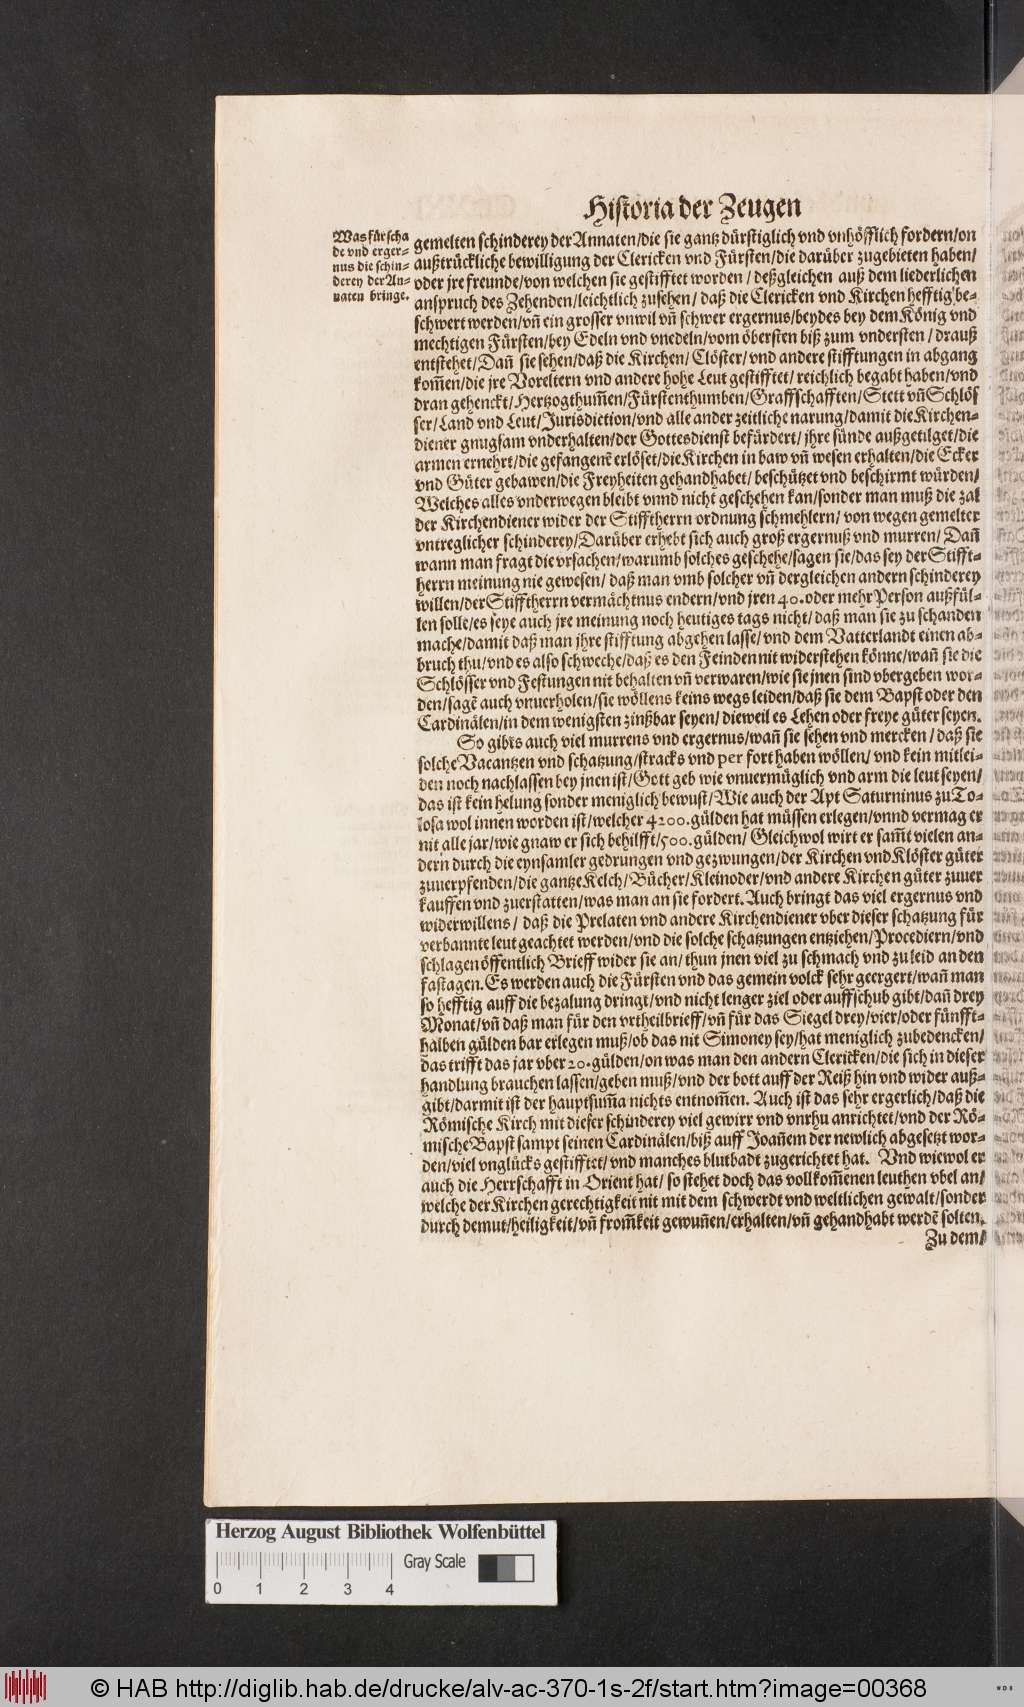 Historia der Zeugen
Was für scha
de vnd erger-
nus die schin-
derey der An-
naten bringe.
gemelten schinderey der Annaten/die sie gantz dürstiglich vnd vnhöfflich fordern/on
außtrückliche bewilligung der Clericken vnd Fürsten/die darüber zugebieten haben/
oder jre freunde/von welchen sie gestifftet worden/ deßgleichen auß dem liederlichen
anspruch des Zehenden/leichtlich zusehen/ daß die Clericken vnd Kirchen hefftig be-
schwert werden/vñ ein grosser vnwil vñ schwer ergernus/beydes bey dem König vnd
mechtigen Fürsten/bey Edeln vnd vnedeln/vom öbersten biß zum vndersten/ drauß
entstehet/Dañ sie sehen/daß die Kirchen/ Clöster/ vnd andere stifftungen in abgang
kom̃en/die jre Voreltern vnd andere hohe Leut gestifftet/ reichlich begabt haben/vnd
dran gehenckt/Hertzogthum̃en/Fürstenthumben/Graffschafften/Stett vñ Schlös
ser/Land vnd Leut/Jurisdiction/vnd alle ander zeitliche narung/damit die Kirchen-
diener gnugsam vnderhalten/der Gottesdienst befürdert/ jhre sünde außgetilget/die
armen ernehrt/die gefangenẽ erlöset/die Kirchen in baw vñ wesen erhalten/die Ecker
vnd Güter gebawen/die Freyheiten gehandhabet/ beschützet vnd beschirmt würden/
Welches alles vnderwegen bleibt vnnd nicht geschehen kan/sonder man muß die zal
der Kirchendiener wider der Stifftherrn ordnung schmehlern/ von wegen gemelter
vntreglicher schinderey/Darüber erhebt sich auch groß ergernuß vnd murren/ Dañ
wann man fragt die vrsachen/warumb solches geschehe/sagen sie/das sey der Stifft-
herrn meinung nie gewesen/ daß man vmb solcher vñ dergleichen andern schinderey
willen/der Stifftherrn vermächtnus endern/vnd jren 40. oder mehr Person außfül-
len solle/es seye auch jre meinung noch heutiges tags nicht/daß man sie zu schanden
mache/damit daß man jhre stifftung abgehen lasse/ vnd dem Vatterlandt einen ab-
bruch thu/vnd es also schweche/daß es den Feinden nit widerstehen könne/wañ sie die
Schlösser vnd Festungen nit behalten vñ verwaren/wie sie jnen sind vbergeben wor-
den/sagẽ auch vnuerholen/sie wöllens keins wegs leiden/daß sie dem Bapst oder den
Cardinälen/in dem wenigsten zinßbar seyen/ dieweil es Lehen oder freye güter seyen.
So gibts auch viel murrens vnd ergernus/wañ sie sehen vnd mercken/ daß sie
solche Vacantzen vnd schatzung/stracks vnd per fort haben wöllen/ vnd kein mitlei-
den noch nachlassen bey jnen ist/Gott geb wie vnuermüglich vnd arm die leut seyen/
das ist kein helung sonder meniglich bewust/Wie auch der Apt Saturninus zu To-
losa wol innen worden ist/welcher 4200. gülden hat müssen erlegen/vnnd vermag er
nit alle jar/wie gnaw er sich behilfft/500. gülden/ Gleichwol wirt er sam̃t vielen an-
dern durch die eynsamler gedrungen vnd gezwungen/der Kirchen vnd Klöster güter
zuuerpfenden/die gantze Kelch/Bücher/Kleinoder/vnd andere Kirchen güter zuuer
kauffen vnd zuerstatten/was man an sie fordert. Auch bringt das viel ergernus vnd
widerwillens/ daß die Prelaten vnd andere Kirchendiener vber dieser schatzung für
verbannte leut geachtet werden/vnd die solche schatzungen entziehen/Procediern/vnd
schlagen öffentlich Brieff wider sie an/ thun jnen viel zu schmach vnd zu leid an den
fastagen. Es werden auch die Fürsten vnd das gemein volck sehr geergert/wañ man
so hefftig auff die bezalung dringt/vnd nicht lenger ziel oder auffschub gibt/dañ drey
Monat/vñ daß man für den vrtheilbrieff/vñ für das Siegel drey/vier/oder fünfft-
halben gülden bar erlegen muß/ob das nit Simoney sey/hat meniglich zubedencken/
das trifft das jar vber 20. gülden/on was man den andern Clericken/die sich in dieser
handlung brauchen lassen/geben muß/vnd der bott auff der Reiß hin vnd wider auß-
gibt/darmit ist der hauptsum̃a nichts entnom̃en. Auch ist das sehr ergerlich/daß die
Römische Kirch mit dieser schinderey viel gewirr vnd vnrhu anrichtet/vnd der Rö-
mische Bapst sampt seinen Cardinälen/biß auff Joañem der newlich abgesetzt wor-
den/viel vnglücks gestifftet/ vnd manches blutbadt zugerichtet hat. Vnd wiewol er
auch die Herrschafft in Orient hat/ so stehet doch das vollkom̃enen leuthen vbel an/
welche der Kirchen gerechtigkeit nit mit dem schwerdt vnd weltlichen gewalt/sonder
durch demut/heiligkeit/vñ from̃keit gewuñen/erhalten/vñ gehandhabt werdẽ solten.
Zu dem/
Herzog August Bibliothek Wolfenbüttel
Gray Scale
0 1 2 3 4
© HAB http://diglib.hab.de/drucke/alv-ac-370-1s-2f/start.htm?image=00368